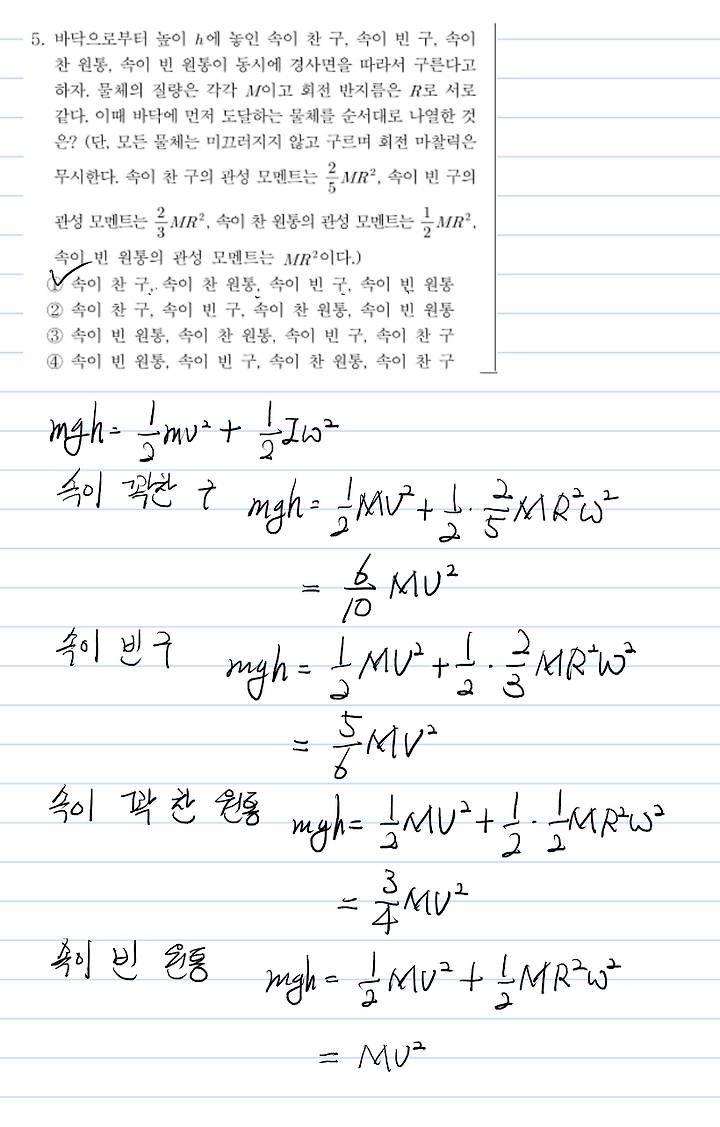 5. 바닥으로부터 높이 h에 놓인 속이 찬 구, 속이 빈 구, 속이
찬 원통, 속이 빈 원통이 동시에 경사면을 따라서 구른다고
하자. 물체의 질량은 각각 M이고 회전 반지름은 R로 서로
같다. 이때 바닥에 먼저 도달하는 물체를 순서대로 나열한 것
은? (단, 모든 물체는 미끄러지지 않고 구르며 회전 마찰력은
무시한다. 속이 찬 구의 관성 모멘트는 2/5 MR², 속이 빈 구의
관성 모멘트는 2/3 MR², 속이 찬 원통의 관성 모멘트는 1/2 MR²,
속이 빈 원통의 관성 모멘트는 MR²이다.)
① 속이 찬 구, 속이 찬 원통, 속이 빈 구, 속이 빈 원통
② 속이 찬 구, 속이 빈 구, 속이 찬 원통, 속이 빈 원통
③ 속이 빈 원통, 속이 찬 원통, 속이 빈 구, 속이 찬 구
④ 속이 빈 원통, 속이 빈 구, 속이 찬 원통, 속이 찬 구
mgh = 1/2 mv² + 1/2 Iω²
속이 꽉찬 구 mgh = 1/2 MV² + 1/2 · 2/5 MR²ω²
= 6/10 MV²
속이 빈 구 mgh = 1/2 MV² + 1/2 · 2/3 MR²ω²
= 5/6 MV²
속이 꽉 찬 원통 mgh = 1/2 MV² + 1/2 · 1/2 MR²ω²
= 3/4 MV²
속이 빈 원통 mgh = 1/2 MV² + 1/2 MR²ω²
= MV²